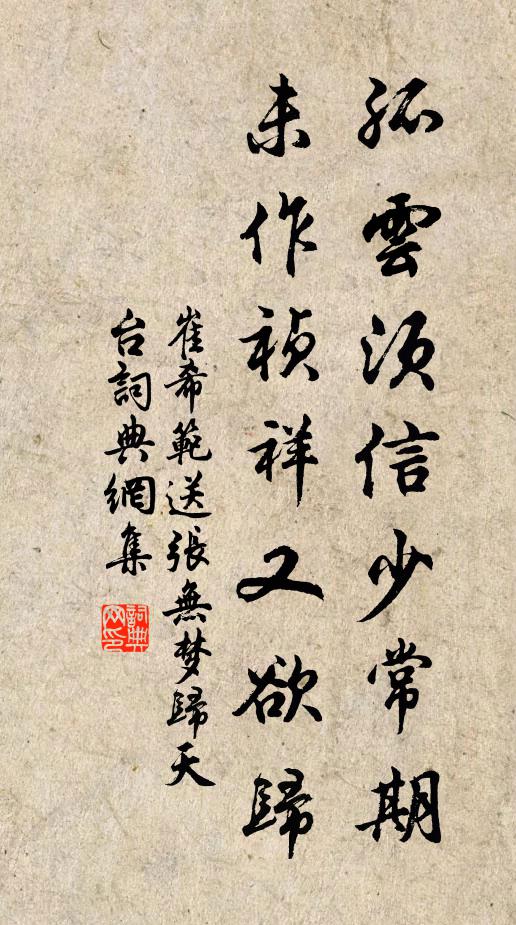 孤雲須信少常期
未作禎祥又欲歸
崔希範送張無梦歸天
台詞典網集
詞典
网印